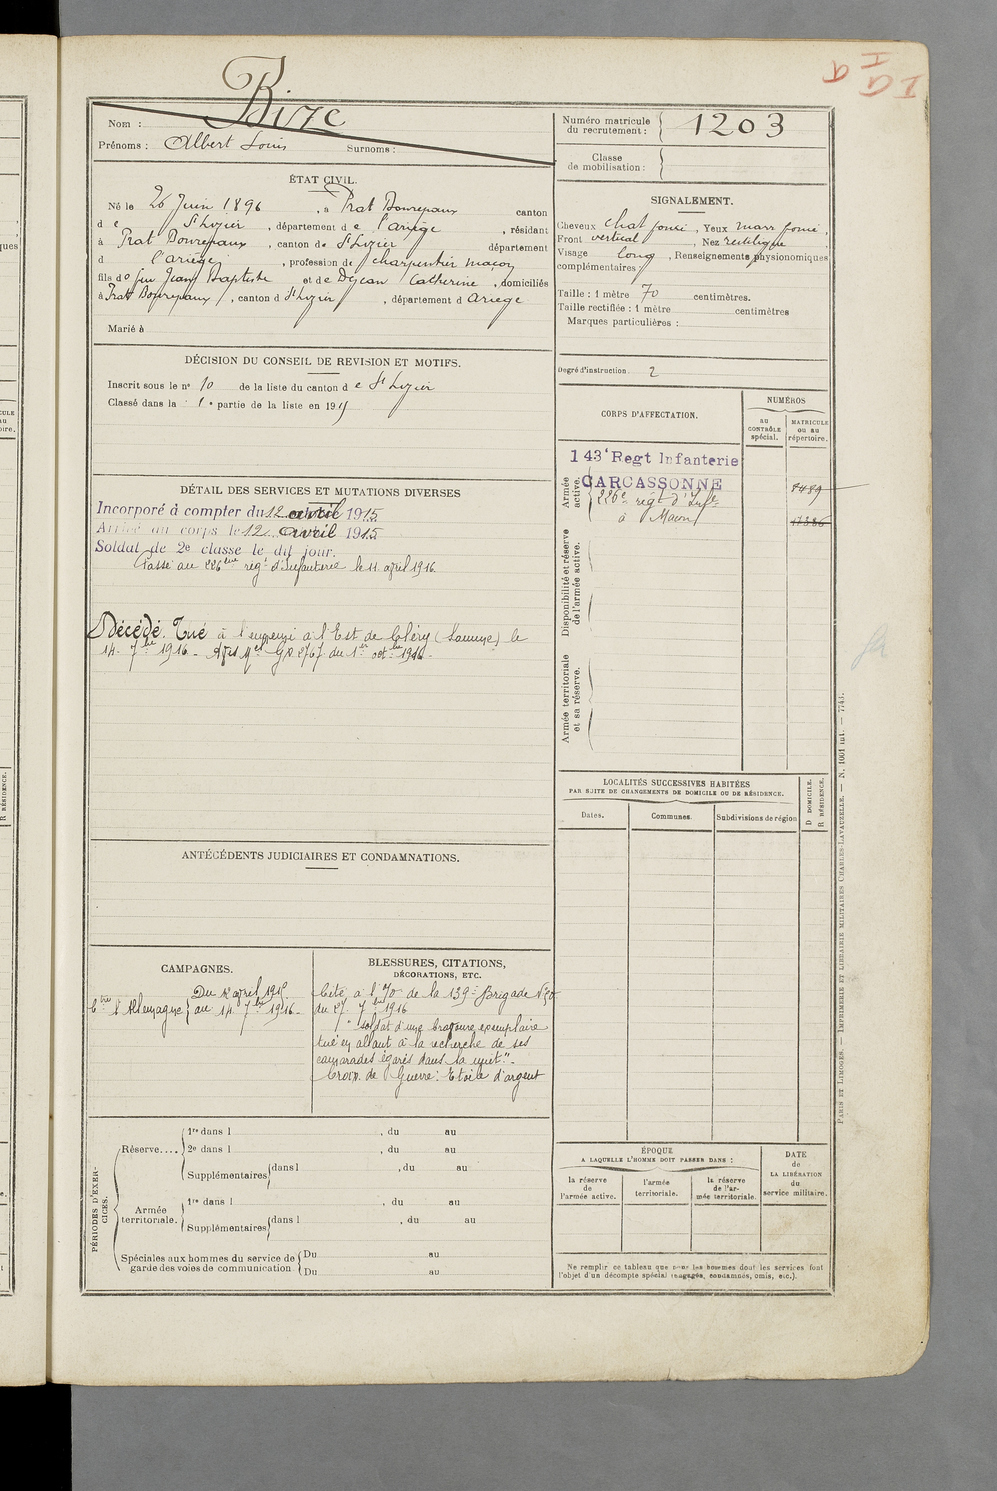 Nom : Bize
Prénoms : Albert Louis Surnoms :
Numéro matricule du recrutement : 1203
Classe de mobilisation :
ÉTAT CIVIL.
Né le 26 Juin 1896, à Prat Bonrepaux canton
d e St Lizier, département d e l'ariège, résidant
à Prat Bonrepaux, canton de St Lizier département
d l'ariège, profession de charpentier maçon
fils de feu Jean Baptiste et de Dejean Catherine, domiciliés
à Prat Bonrepaux, canton d St Lizier, département d Ariège
Marié à
SIGNALEMENT.
Cheveux chat foncé, Yeux marr foncé,
Front vertical, Nez rectiligne
Visage long, Renseignements physionomiques
complémentaires
Taille : 1 mètre 70 centimètres.
Taille rectifiée : 1 mètre centimètres
Marques particulières :
Degré d'instruction. 2
DÉCISION DU CONSEIL DE REVISION ET MOTIFS.
Inscrit sous le n° 10 de la liste du canton d e St Lizier
Classé dans la 1e partie de la liste en 1915
CORPS D'AFFECTATION.
NUMÉROS
au CONTRÔLE spécial.
MATRICULE ou au répertoire.
Armée active.
143e Regt Infanterie
CARCASSONNE
226e régt d'Infie
à Macon
Disponibilité et réserve de l'armée active.
Armée territoriale et sa réserve.
DÉTAIL DES SERVICES ET MUTATIONS DIVERSES
Incorporé à compter du 12 avril 1915
Arrivé au corps le 12 avril 1915
Soldat de 2e classe le dit jour.
Passé au 226ème régt d'Infanterie le 11 april 1916.
Décédé. Tué à l'ennemi à l'Est de Cléry (Somme) le
14 7bre 1916 - Avis Mel GR 2767 du 1er octbre 1916 -
LOCALITÉS SUCCESSIVES HABITÉES
PAR SUITE DE CHANGEMENTS DE DOMICILE OU DE RÉSIDENCE.
Dates.
Communes.
Subdivisions de région
D DOMICILE.
R RÉSIDENCE.
ANTÉCÉDENTS JUDICIAIRES ET CONDAMNATIONS.
CAMPAGNES.
Ctre l'Allemagne { Du 12 avril 1915.
au 14 7bre 1916 -
BLESSURES, CITATIONS,
DÉCORATIONS, ETC.
Cité à l'O de la 139e Brigade N°50
du 27 7bre 1916
" soldat d'une bravoure exemplaire
tué en allant à la recherche de ses
camarades égarés dans la nuit." -
Croix de Guerre : Etoile d'argent
PÉRIODES D'EXERCICES.
Réserve....
1re dans l , du au
2e dans l , du au
Supplémentaires dans l , du au
Armée territoriale.
1re dans l , du au
Supplémentaires dans l , du au
Spéciales aux hommes du service de garde des voies de communication
Du au
Du au
ÉPOQUE
A LAQUELLE L'HOMME DOIT PASSER DANS :
la réserve de l'armée active.
l'armée territoriale.
la réserve de l'armée territoriale.
DATE de LA LIBÉRATION du service militaire.
Ne remplir ce tableau que pour les hommes dont les services font
l'objet d'un décompte spécial (engagés, condamnés, omis, etc.).
PARIS ET LIMOGES. — IMPRIMERIE ET LIBRAIRIE MILITAIRES CHARLES-LAVAUZELLE. — N. 1001 int. — 7743.